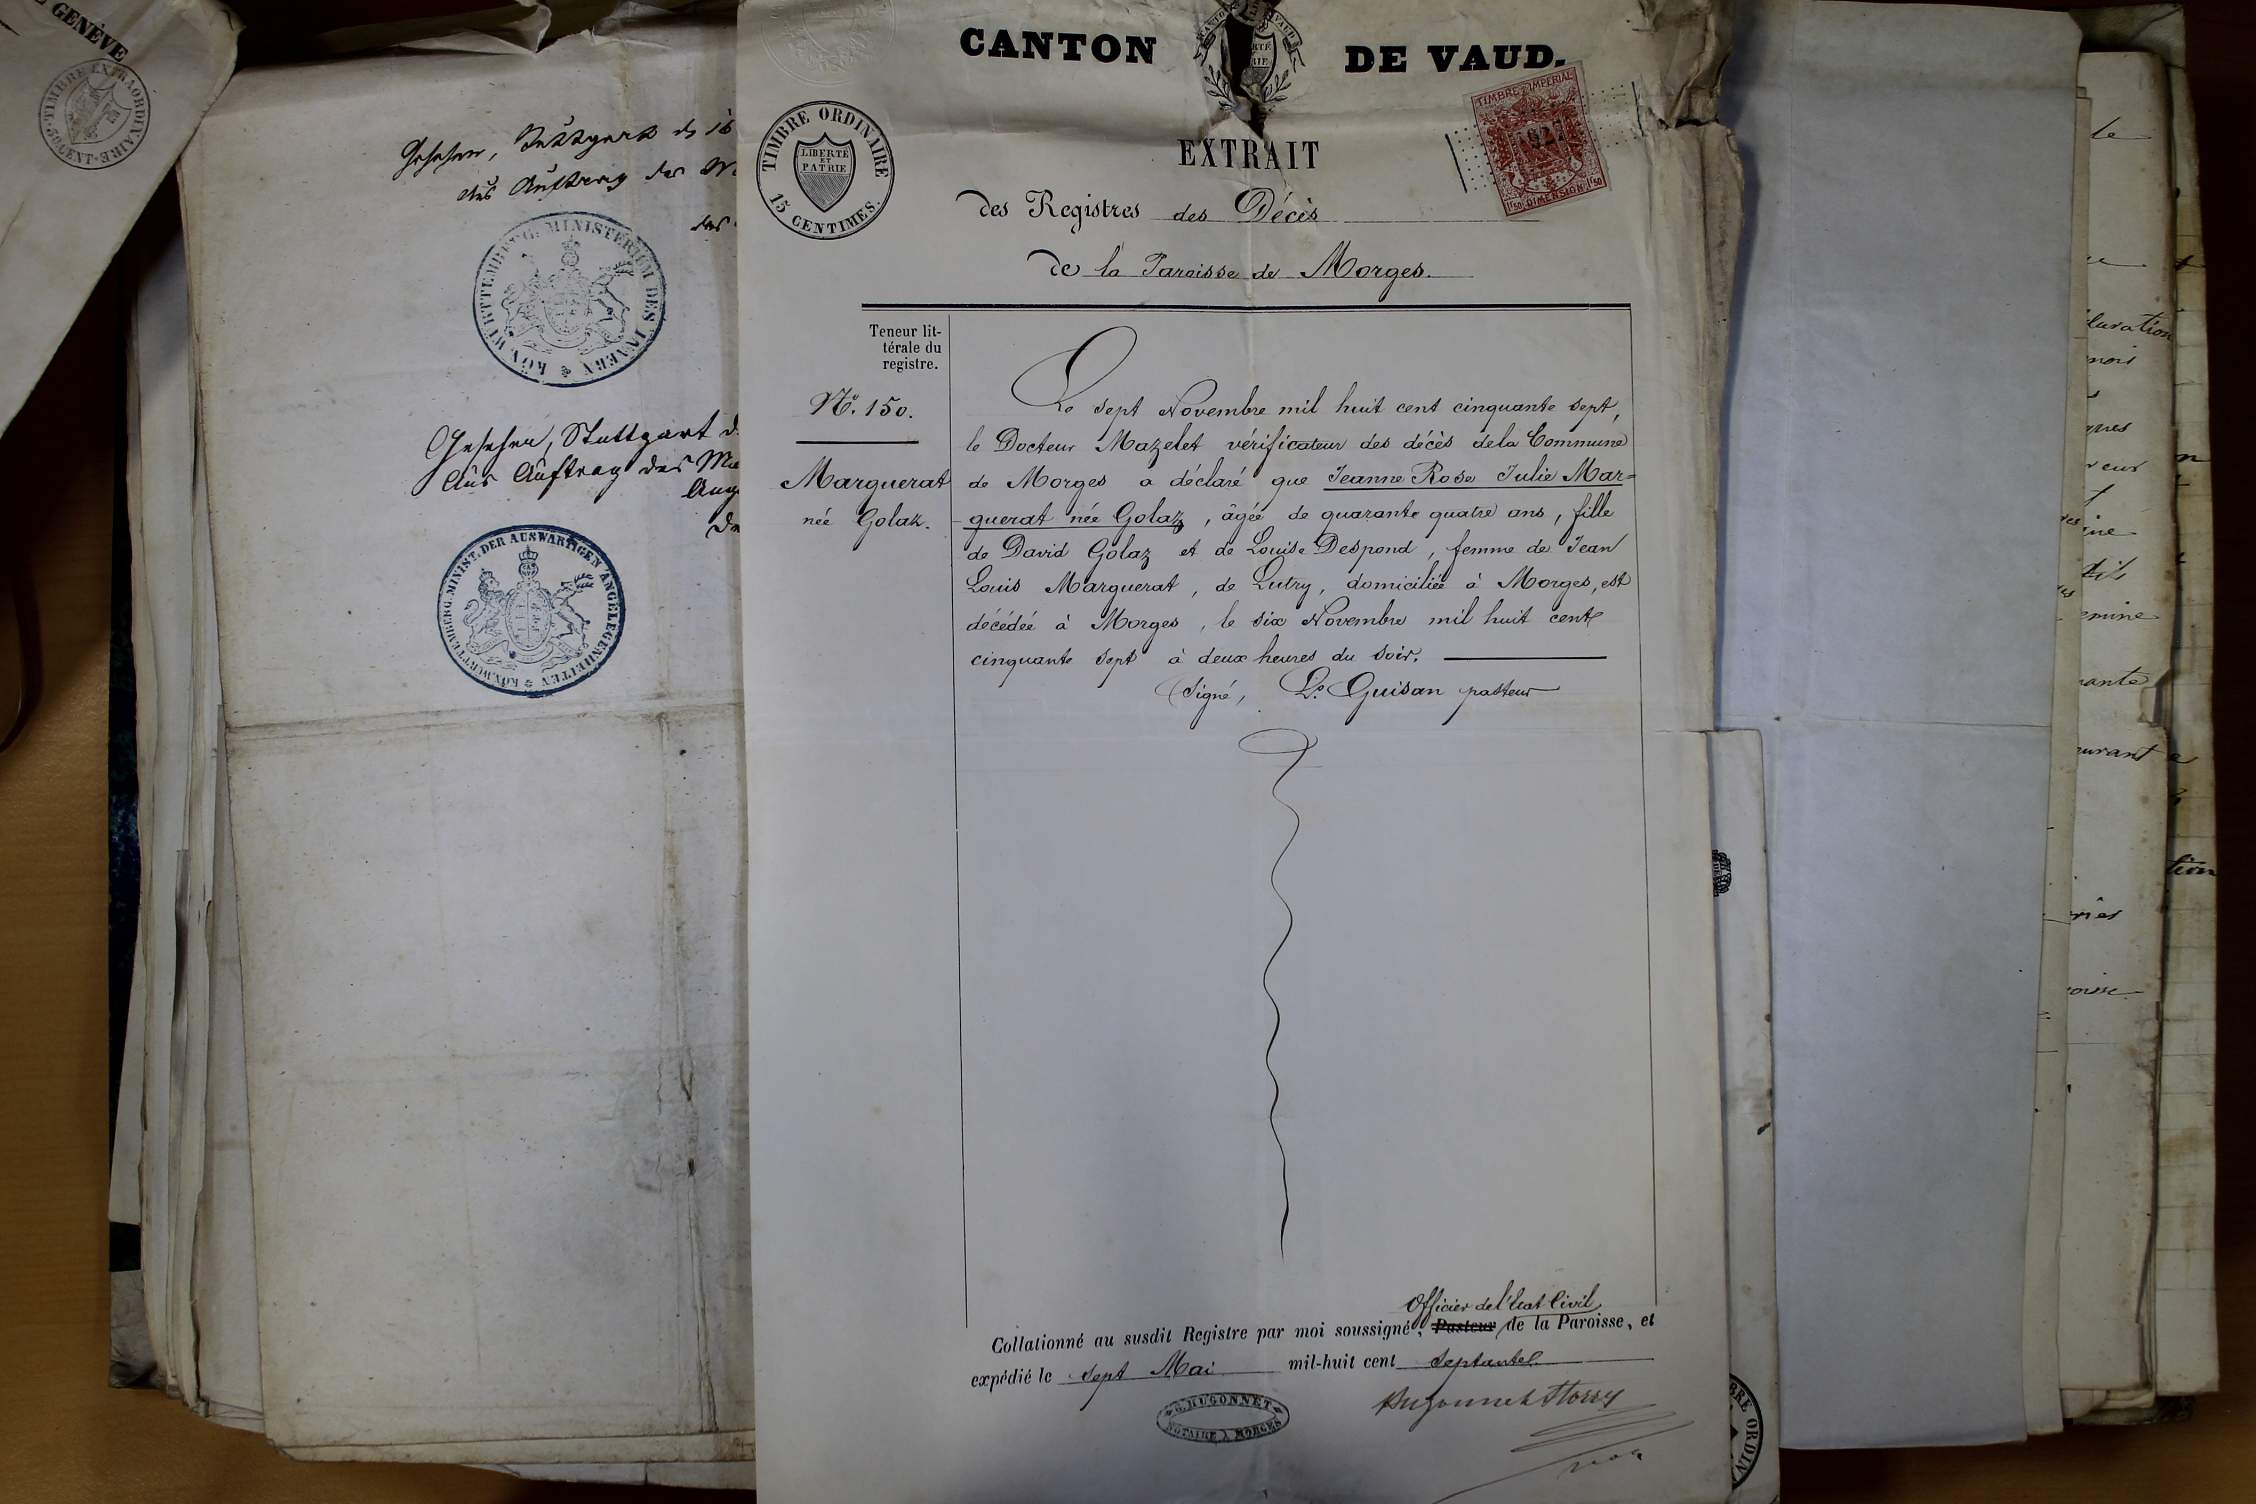 GENÈVE
TIMBRE EXTRAORDINAIRE
50 CENT
Gesehen, Stuttgart
aus Auftrag des
des
KÖN. WÜRTTEMBERG. MINISTERIUM DES INNERN
Gesehen, Stuttgart d
Aus Auftrag des Mi
Ang
KÖN. WÜRTTEMBERG. MINIST. DER AUSWÄRTIGEN ANGELEGENHEITEN
CANTON DE VAUD.
TIMBRE ORDINAIRE
LIBERTÉ
ET
PATRIE
15 CENTIMES.
TIMBRE IMPERIAL
1927
1f50 DIMENSION 1f50
EXTRAIT
des Registres des Décès
de la Paroisse de Morges.
Teneur lit-
térale du
registre.
No. 150.
Marguerat
née Golaz.
Le sept Novembre mil huit cent cinquante sept,
le Docteur Mazelet vérificateur des décès de la Commune
de Morges a déclaré que Jeanne Rose Julie Mar=
guerat née Golaz, âgée de quarante quatre ans, fille
de David Golaz et de Louise Despond, femme de Jean
Louis Marguerat, de Lutry, domiciliée à Morges, est
décédée à Morges, le six Novembre mil huit cent
cinquante sept à deux heures du soir.
Signé, Ls. Guisan pasteur
Officier de l'Etat Civil
Collationné au susdit Registre par moi soussigné, Pasteur de la Paroisse, et
expédié le sept Mai mil-huit cent septante.
G. HUGONNET
NOTAIRE À MORGES
ORDIN
le
laration
mois
eur
emine
ante
ourant
tion